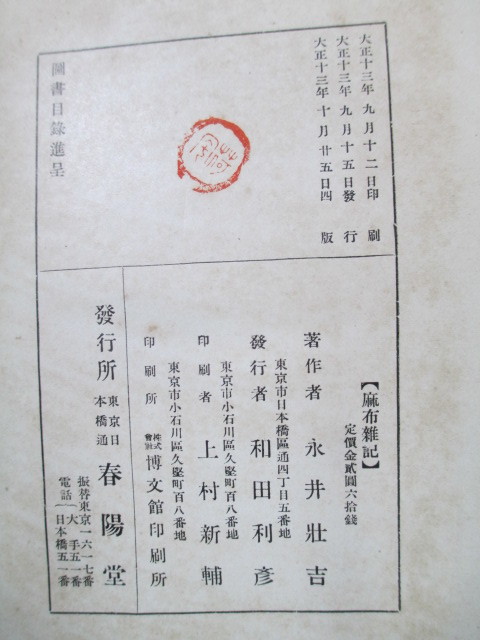 大正十三年九月十二日印刷
大正十三年九月十五日發行
大正十三年十月廿五日四版
圖書目錄進呈
【麻布雜記】
定價金貳圓六拾錢
著作者 永井壯吉
東京市日本橋區通四丁目五番地
發行者 和田利彦
東京市小石川區久堅町百八番地
印刷者 上村新輔
東京市小石川區久堅町百八番地
印刷所 株式會社 博文館印刷所
發行所 東京日本橋通 春陽堂
振替東京一六一七番
電話 大手五一番
日本橋五一番